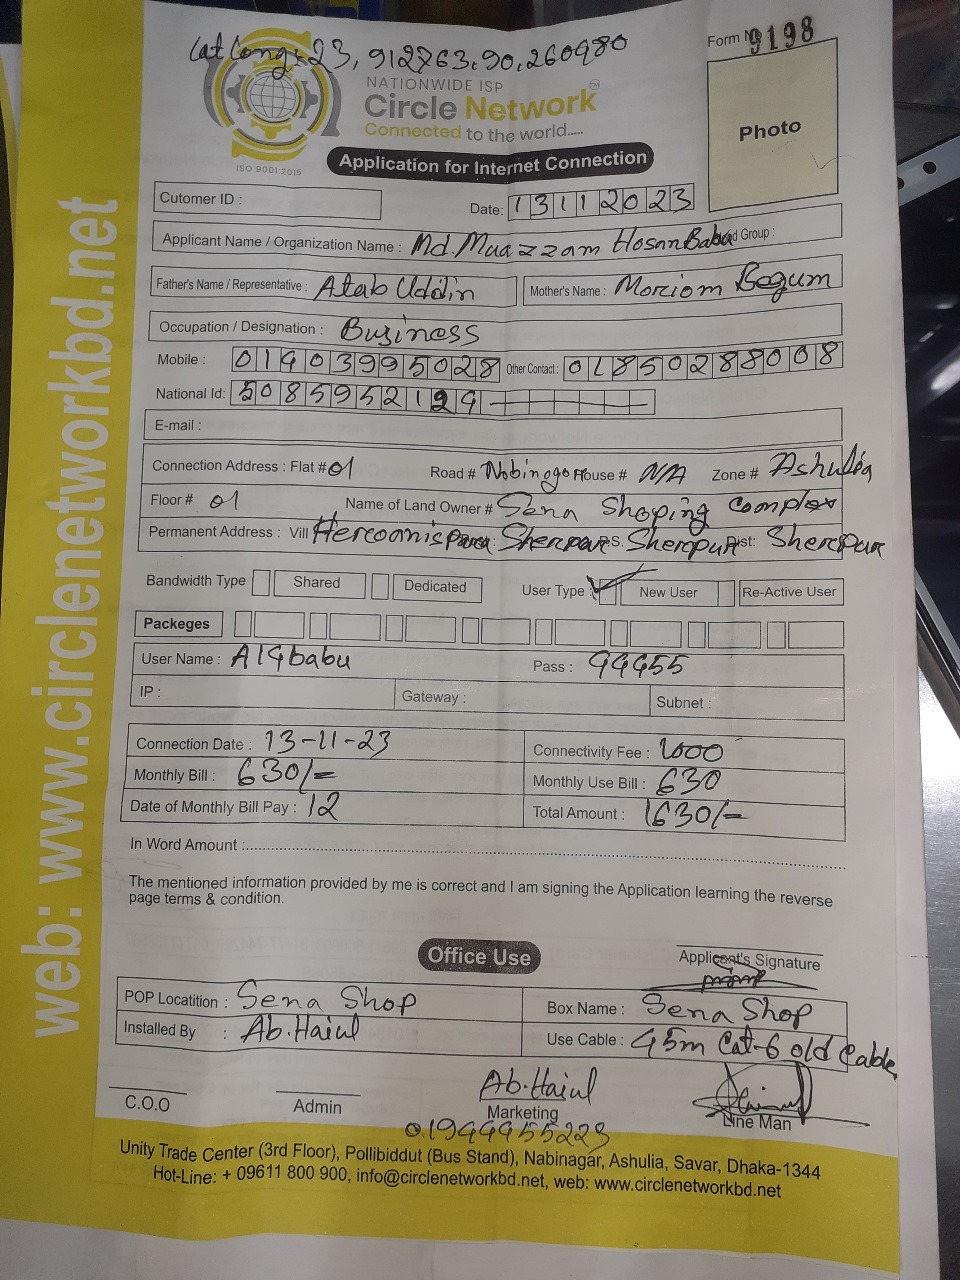 Form No 9198
Lat Long: 23, 912763, 90, 260980
NATIONWIDE ISP
Circle Network™
Connected to the world.....
ISO 9001:2015
Application for Internet Connection
Photo
Cutomer ID :
Date: 13112023
Applicant Name / Organization Name : Md. Muazzam Hosan Babu d Group :
Father's Name / Representative : Atab Uddin Mother's Name : Moriom Begum
Occupation / Designation : Business
Mobile : 01903995028 Other Contact : 01850288008
National Id: 5085952129
E-mail :
Connection Address : Flat # 01 Road # Nobinogo House # N/A Zone # Ashulia
Floor # 01 Name of Land Owner # Sena Shoping Complex
Permanent Address : Vill Sherpur P.S. Sherpur Dist: Sherpur
Bandwidth Type Shared Dedicated User Type : ✓ New User Re-Active User
Packeges
User Name : A19babu Pass : 99955
IP : Gateway : Subnet :
Connection Date : 13-11-23 Connectivity Fee : 1000
Monthly Bill : 630/= Monthly Use Bill : 630
Date of Monthly Bill Pay : 12 Total Amount : 1630/=
In Word Amount :
The mentioned information provided by me is correct and I am signing the Application learning the reverse
page terms & condition.
Office Use
Applicant's Signature
POP Locatition : Sena Shop Box Name : Sena Shop
Installed By : Ab. Haiul Use Cable : 45m Cat-6 old Cable
Ab. Haiul
C.O.O Admin Marketing Line Man
01944955223
Unity Trade Center (3rd Floor), Pollibiddut (Bus Stand), Nabinagar, Ashulia, Savar, Dhaka-1344
Hot-Line: + 09611 800 900, info@circlenetworkbd.net, web: www.circlenetworkbd.net
web: www.circlenetworkbd.net